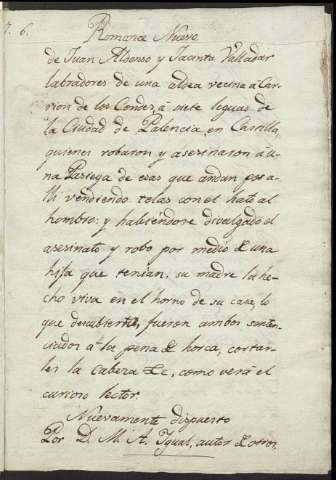 N. 6. Romance Nuevo
de Juan Alonso y Jacinta Valladar
labradores de una aldea vecina a Car-
rion de los Condes, a siete leguas de
la Ciudad de Palencia, en Castilla,
quienes robaron y asesinaron a u-
na Pasiega de esas que andan por a-
lli vendiendo telas con el hato al
hombro: y habiendose divulgado el
asesinato y robo por medio de una
hija que tenian, su madre la he-
chó viva en el horno de su casa, lo
que descubierto, fueron ambos senten-
ciados a la pena de horca, cortar-
les la cabeza &c, como verá el
curioso lector.
Nuevamente dispuesto
Por D. M. A. Igual, autor de otros.